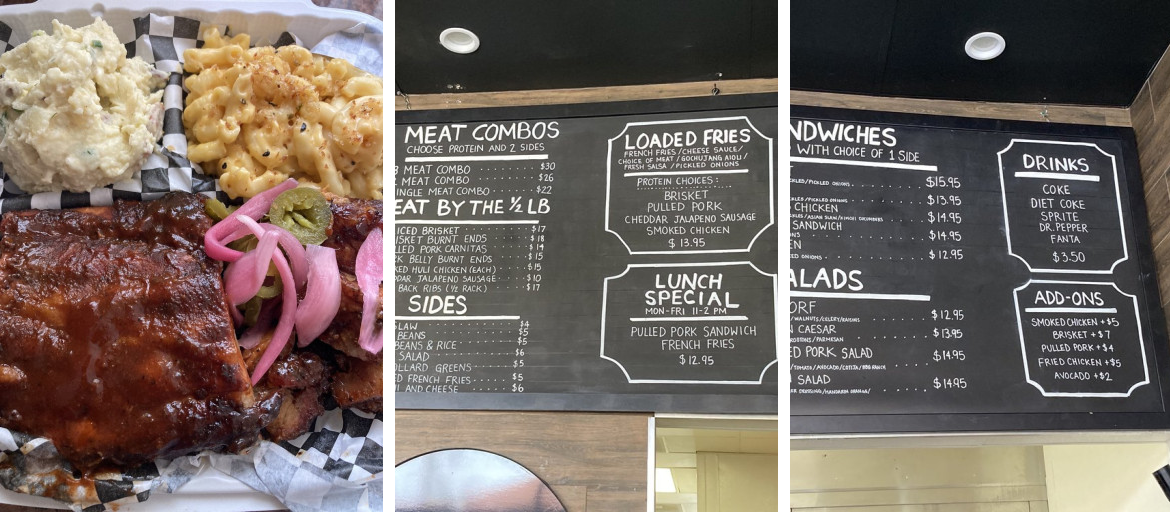 MEAT COMBOS
CHOOSE PROTEIN AND 2 SIDES
MEAT COMBO $30
MEAT COMBO $26
MEAT COMBO $22
BY THE ½ LB
BRISKET $17
BRISKET BURNT ENDS $18
PULLED PORK CARNITAS $14
BELLY BURNT ENDS $15
HULI CHICKEN (EACH) $15
JALAPENO SAUSAGE $10
BACK RIBS (½ RACK) $17
SIDES
SLAW $4
BEANS $5
BEANS & RICE $5
SALAD $6
COLLARD GREENS $5
FRENCH FRIES $5
AND CHEESE $6
LOADED FRIES
FRENCH FRIES/CHEESE SAUCE/
CHOICE OF MEAT/GOCHUJANG AIOLI/
FRESH SALSA/PICKLED ONIONS
PROTEIN CHOICES:
BRISKET
PULLED PORK
CHEDDAR JALAPENO SAUSAGE
SMOKED CHICKEN
$13.95
LUNCH
SPECIAL
MON-FRI 11-2 PM
PULLED PORK SANDWICH
FRENCH FRIES
$12.95
NDWICHES
WITH CHOICE OF 1 SIDE
/PICKLED ONIONS $15.95
/PICKLED ONIONS $13.95
CHICKEN
/ASIAN SLAW/KIMCHI CUCUMBERS $14.95
SANDWICH
$14.95
ONIONS $12.95
ALADS
$12.95
/WALNUTS/CELERY/RAISINS
CAESAR
/PARMESAN $13.95
PORK SALAD $14.95
/TOMATO/AVOCADO/COTIJA/BBQ RANCH
SALAD $14.95
DRINKS
COKE
DIET COKE
SPRITE
DR.PEPPER
FANTA
$3.50
ADD-ONS
SMOKED CHICKEN +$5
BRISKET +$7
PULLED PORK +$4
FRIED CHICKEN +$5
AVOCADO +$2